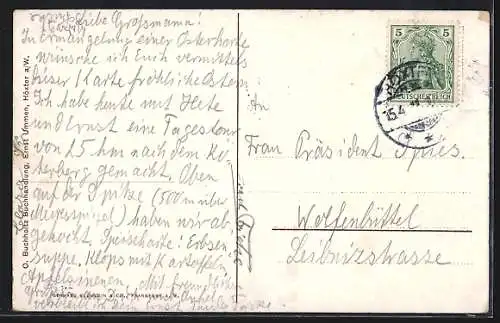 Liebe Grossmama!
In Ermangelung einer Osterkarte
wünsche ich Euch vermittels
dieser Karte fröhliche Ostern
Ich habe heute mit Hete
und Ernst eine Tagestour
von 25 km nach dem Kö-
terberg gemacht. Oben
auf der Spitze (500 m über
Meeresspiegel) haben wir ab-
gekocht. Speisekarte: Erbsen
suppe, Klops mit Kartoffeln
Apfelsinen. Mit
O. Buchholtz Buchhandlung, Ernst Ummen, Höxter a/W.
5
5
DEUTSCHES REICH
HÖXTER
15.4
An
Frau Präsident Spies.
Wolfenbüttel
Leibnizstrasse